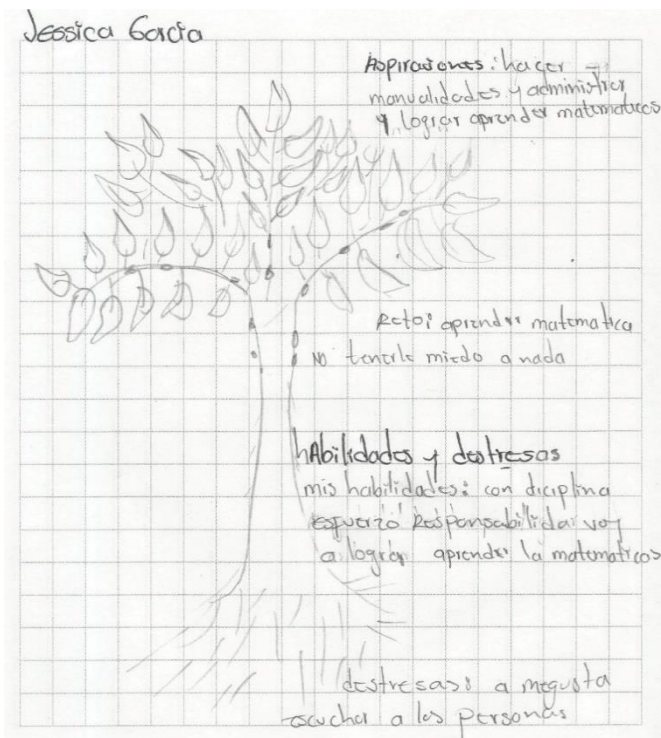 Jessica Garcia
Aspiraciones: hacer
manualidades y administrar
y lograr aprender matematicas
Reto: aprender matematica
No tenerle miedo a nada
hAbilidades y destresas
mis habilidades: con diciplina
esfuerzo Responsabilidar voy
a lograr aprender la matematicas
destresas: a megusta
escuchar a las personas